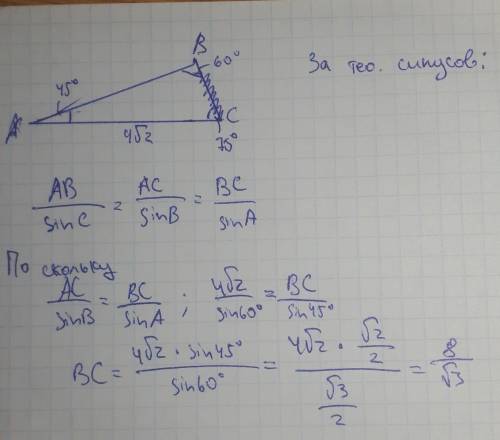 B
60°
За тео. синусов:
45°
A
C
4√2
75°
AB/sinC = AC/sinB = BC/sinA
По скольку
AC/sinB = BC/sinA ; 4√2/sin60° = BC/sin45°
BC = 4√2 · sin45°/sin60° = (4√2 · √2/2)/(√3/2) = 8/√3